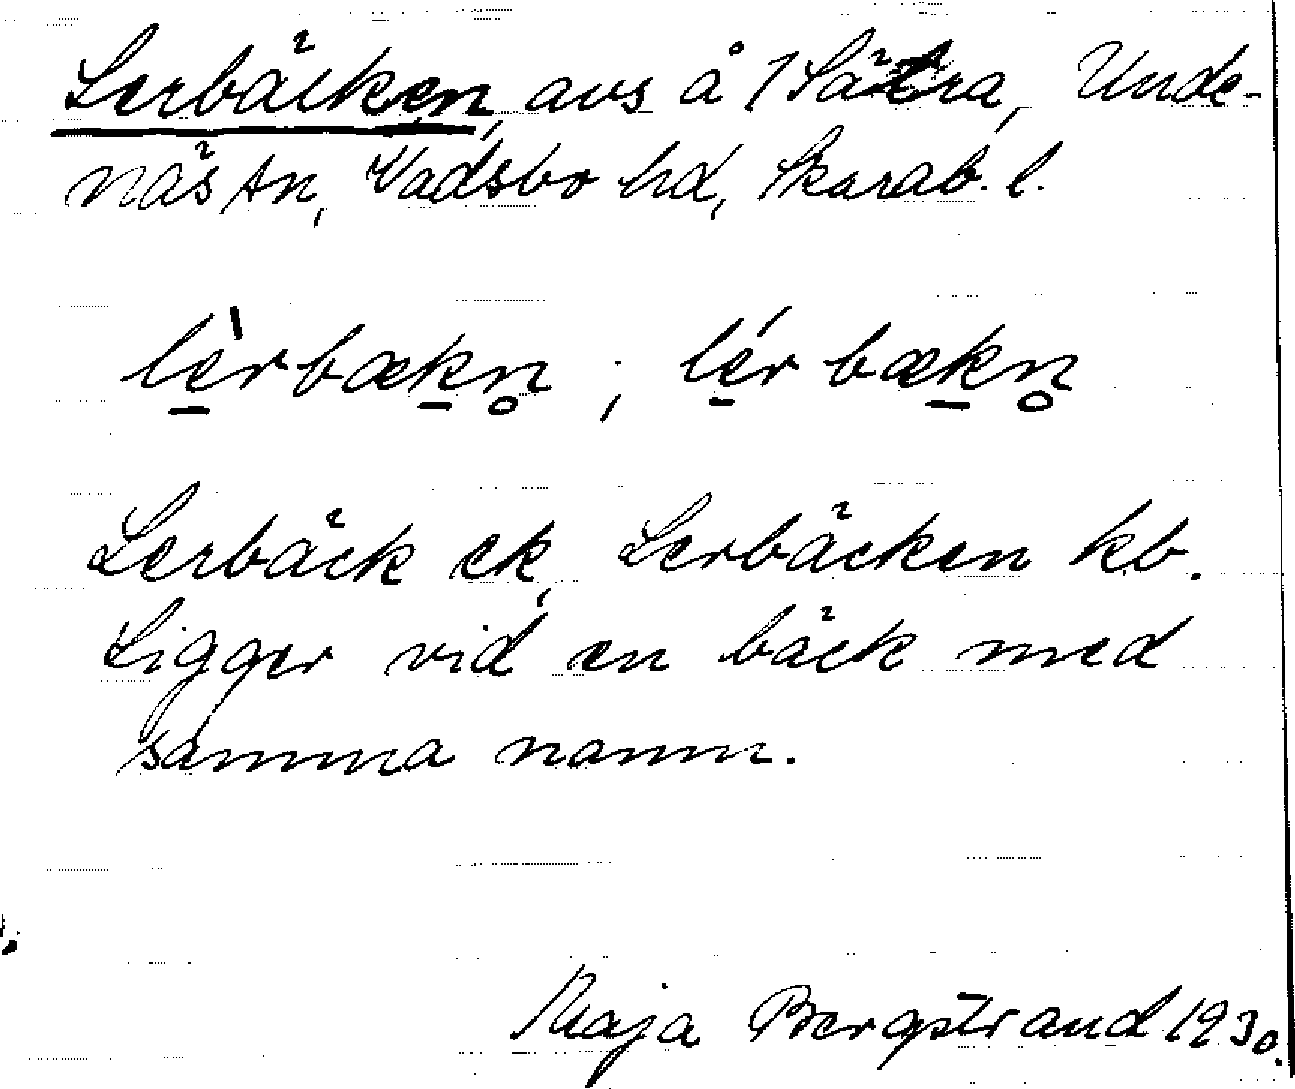 Lerbäcken, avs å 1 Sätra, Unde-
näs sn, Vadsbo hd, Skarab. l.
lèrbækn̥ ; lérbækn̥
Lerbäck ek, Lerbäcken kb.
Ligger vid en bäck med
samma namn.
Maja Bergstrand 1930.